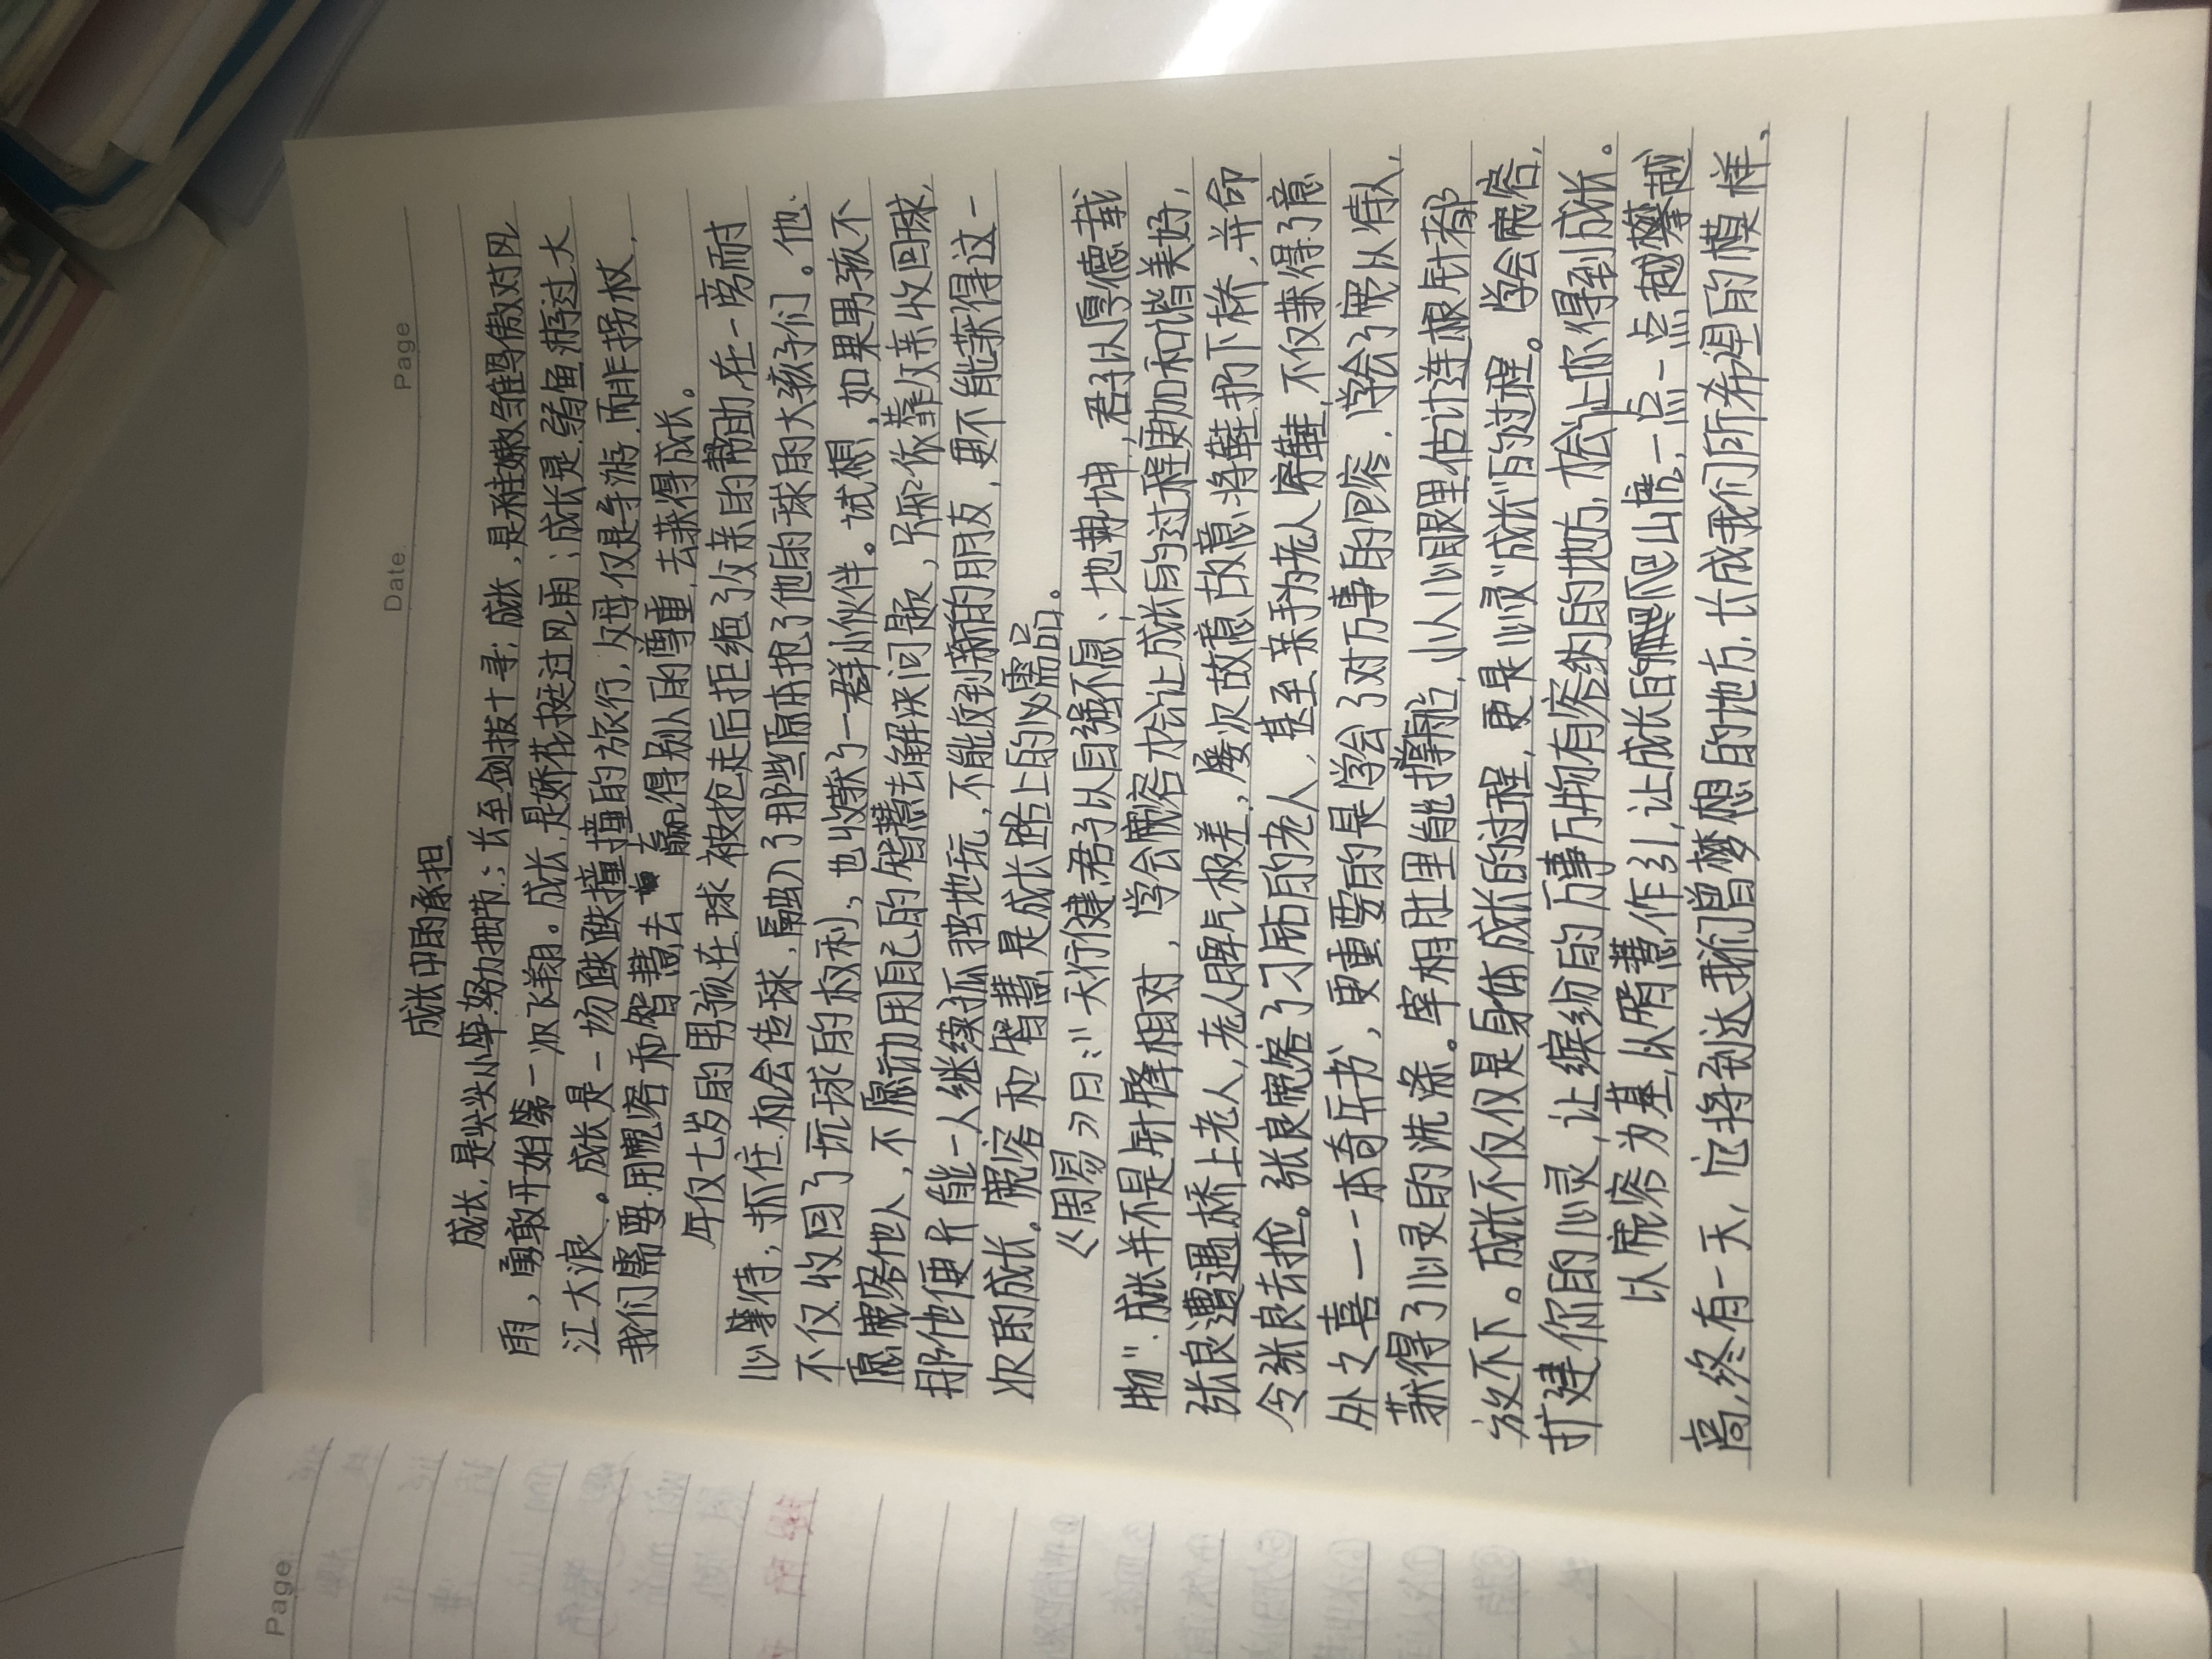 Date
Page
成长中的承担
成长,是尖尖小笋努力拥节;长至剑拔十寻;成长,是稚嫩雏鹰傲对风
雨,勇敢开始第一次飞翔。成长,是娇花挺过风雨;成长是弱鱼游过大
江大浪。成长是一场跌跌撞撞的旅行,父母仅是导游,而非拐杖,
我们需要用宽容和智慧去赢得别人的尊重,去获得成长。
年仅七岁的男孩在球被抢走后拒绝了父亲的帮助,在一旁耐
心等待,抓住机会传球,融入了那些原本抢了他的球的大孩子们。他
不仅收回了玩球的权利,也收获了一群小伙伴。试想,如果男孩不
愿宽容他人,不愿动用自己的智慧去解决问题,只知依靠父亲收回球,
那他便只能一人继续孤独地玩,不能收到新的朋友,更不能获得这一
次的成长。宽容和智慧是成长路上的必需品。
《周易》曰:"天行健,君子以自强不息、地势坤,君子以厚德载
物".成长并不是针锋相对,学会宽容才会让成长的过程更加和谐美好,
张良遭遇桥上老人,老人脾气极差,屡次故意故意将鞋扔下桥,并命
令张良去捡。张良宽容了刁钻的老人,甚至亲手为老人穿鞋,不仅获得了意
外之喜——一本奇兵书,更重要的是学会了对万事的包容,学会了宽以待人,
获得了心灵的洗涤。宰相肚里能撑船,小人心眼里估计连根针都
放不下。成长不仅仅是身体成长的过程,更是心灵"成长"的过程。学会宽容,
扩建你的心灵,让缤纷的万事万物有容纳的地方,才会让你得到成长。
以宽容为基,以智慧作引,让成长的爬山虎一点一点越攀越
高,终有一天,它将到达我们曾梦想的地方,长成我们所希望的模样,
Page